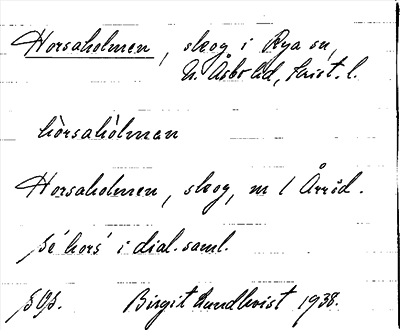 Horsaholmen, skog i Rya sn,
N. Åsbo hd, Krist. l.
hòrsahòlman
Horsaholmen, skog, m / Årröd.
se´ hors´ i dial. saml.
Birgit Lundkvist 1938.